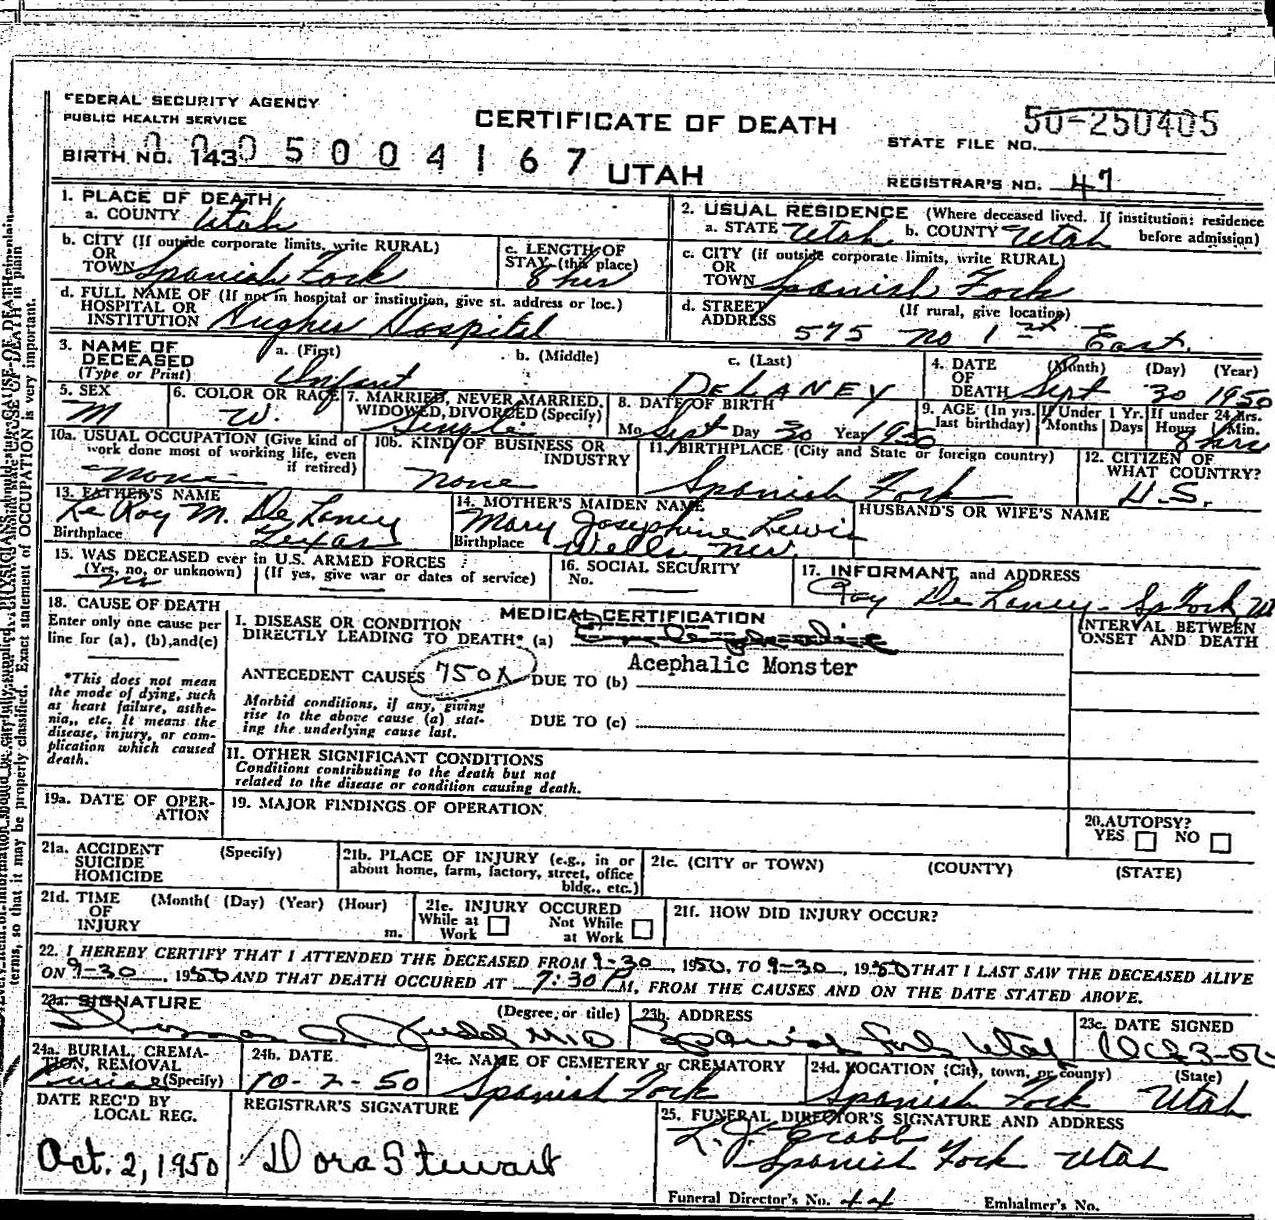 FEDERAL SECURITY AGENCY
PUBLIC HEALTH SERVICE
CERTIFICATE OF DEATH
STATE FILE NO. 50-250405
BIRTH NO. 143 05004167
UTAH
REGISTRAR'S NO. 47
1. PLACE OF DEATH
a. COUNTY Utah
2. USUAL RESIDENCE (Where deceased lived. If institution: residence before admission)
a. STATE Utah b. COUNTY Utah
b. CITY (If outside corporate limits, write RURAL)
OR
TOWN Spanish Fork
c. LENGTH OF
STAY (this place)
8 hrs
c. CITY (if outside corporate limits, write RURAL)
OR
TOWN Spanish Fork
d. FULL NAME OF (If not in hospital or institution, give st. address or loc.)
HOSPITAL OR
INSTITUTION Hughes Hospital
d. STREET (If rural, give location)
ADDRESS 575 No 1st East.
3. NAME OF
DECEASED
(Type or Print)
a. (First) b. (Middle) c. (Last)
Infant DELANEY
4. DATE (Month) (Day) (Year)
OF
DEATH Sept 30 1950
5. SEX
M
6. COLOR OR RACE
W.
7. MARRIED, NEVER MARRIED,
WIDOWED, DIVORCED (Specify)
Single
8. DATE OF BIRTH
Mo Sept Day 30 Year 1950
9. AGE (In yrs. last birthday)
If Under 1 Yr.
Months Days
If under 24 Hrs.
Hours Min.
8 hrs
10a. USUAL OCCUPATION (Give kind of
work done most of working life, even
if retired)
None
10b. KIND OF BUSINESS OR
INDUSTRY
None
11. BIRTHPLACE (City and State or foreign country)
Spanish Fork
12. CITIZEN OF
WHAT COUNTRY?
U.S.
13. FATHER'S NAME
LeRoy M. DeLaney
Birthplace Texas
14. MOTHER'S MAIDEN NAME
Mary Josephine Lewis
Birthplace Wells Nev
HUSBAND'S OR WIFE'S NAME
15. WAS DECEASED ever in U.S. ARMED FORCES
(Yes, no, or unknown) (If yes, give war or dates of service)
no
16. SOCIAL SECURITY
No.
17. INFORMANT and ADDRESS
Roy DeLaney - Sp Fork, Ut
18. CAUSE OF DEATH
Enter only one cause per
line for (a), (b), and (c)
*This does not mean
the mode of dying, such
as heart failure, asthe-
nia, etc. It means the
disease, injury, or com-
plication which caused
death.
MEDICAL CERTIFICATION
I. DISEASE OR CONDITION
DIRECTLY LEADING TO DEATH* (a)
Acephalic Monster
ANTECEDENT CAUSES 750X DUE TO (b)
Morbid conditions, if any, giving
rise to the above cause (a) stat-
ing the underlying cause last.
DUE TO (c)
INTERVAL BETWEEN
ONSET AND DEATH
II. OTHER SIGNIFICANT CONDITIONS
Conditions contributing to the death but not
related to the disease or condition causing death.
19a. DATE OF OPER-
ATION
19. MAJOR FINDINGS OF OPERATION
20. AUTOPSY?
YES NO
21a. ACCIDENT (Specify)
SUICIDE
HOMICIDE
21b. PLACE OF INJURY (e.g., in or
about home, farm, factory, street, office
bldg., etc.)
21c. (CITY or TOWN) (COUNTY) (STATE)
21d. TIME (Month( (Day) (Year) (Hour)
OF
INJURY m.
21e. INJURY OCCURED
While at Work Not While at Work
21f. HOW DID INJURY OCCUR?
22. I HEREBY CERTIFY THAT I ATTENDED THE DECEASED FROM 9-30, 1950, TO 9-30, 1950 THAT I LAST SAW THE DECEASED ALIVE
ON 9-30, 1950 AND THAT DEATH OCCURED AT 7:30 P M, FROM THE CAUSES AND ON THE DATE STATED ABOVE.
23a. SIGNATURE (Degree, or title)
MD
23b. ADDRESS
Spanish Fork Utah
23c. DATE SIGNED
24a. BURIAL, CREMA-
TION, REMOVAL
(Specify)
Burial
24b. DATE
10-2-50
24c. NAME OF CEMETERY or CREMATORY
Spanish Fork
24d. LOCATION (City, town, or county) (State)
Spanish Fork Utah
DATE REC'D BY
LOCAL REG.
Oct. 2, 1950
REGISTRAR'S SIGNATURE
Dora Stewart
25. FUNERAL DIRECTOR'S SIGNATURE AND ADDRESS
Spanish Fork Utah
Funeral Director's No. 44 Embalmer's No.
terms, so that it may be properly classified. Exact statement of OCCUPATION is very important.